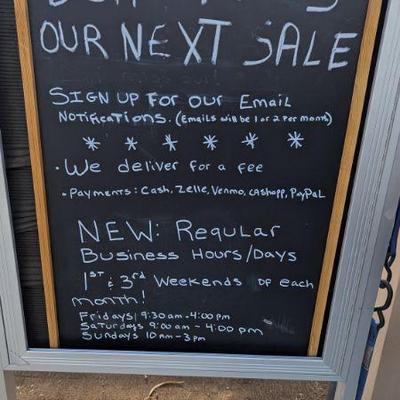 OUR NEXT SALE
SIGN UP FOR OUR EMAIL
NOTIFICATIONS. (EMAILS WILL BE 1 OR 2 PER MONTH)
* * * * * *
• WE DELIVER FOR A FEE
• PAYMENTS: CASH, ZELLE, VENMO, CASHAPP, PAYPAL
NEW: REGULAR
BUSINESS HOURS/DAYS
1ST & 3rd WEEKENDS OF EACH
MONTH!
FRIDAYS 9:30 am - 4:00 pm
SATURDAYS 9:00 am - 4:00 pm
SUNDAYS 10 AM - 3 pm